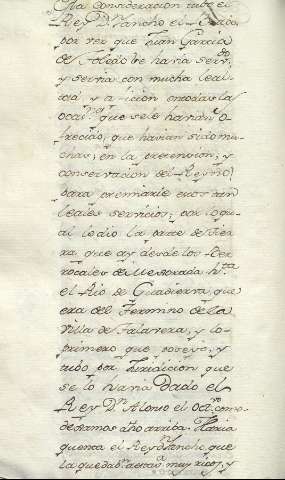 Ha consideracion tubo el
Rey Dⁿ Sancho el Brabo
por ver que Juan Garcia
de Toledo le havia servᵈᵒ
y servia con mucha leal
tad y aficion en todas las
ocasⁿᵉˢ que se le havian o
frecido, que havian sido mu
chas, en la pretension, y
conservacion del Reyno,
para premiarle estos tan
leales servicios; por lo qu
al le dio la parte de Tier
ra que ay desde los Ber
rocales de Mejorada hᵗᵃ
el Rio de Guadierva, que
era del Termino de la
villa de Talavera, y lo
primero que poseyo, y
tubo por Jurisdicion que
se lo havia dado el
Rey Dⁿ Alonso el Octᵛᵒ, como
dejamos año arriba. Havia
quenta el Rey Dⁿ Sancho, que
la quedabⁿ muy ricos, y